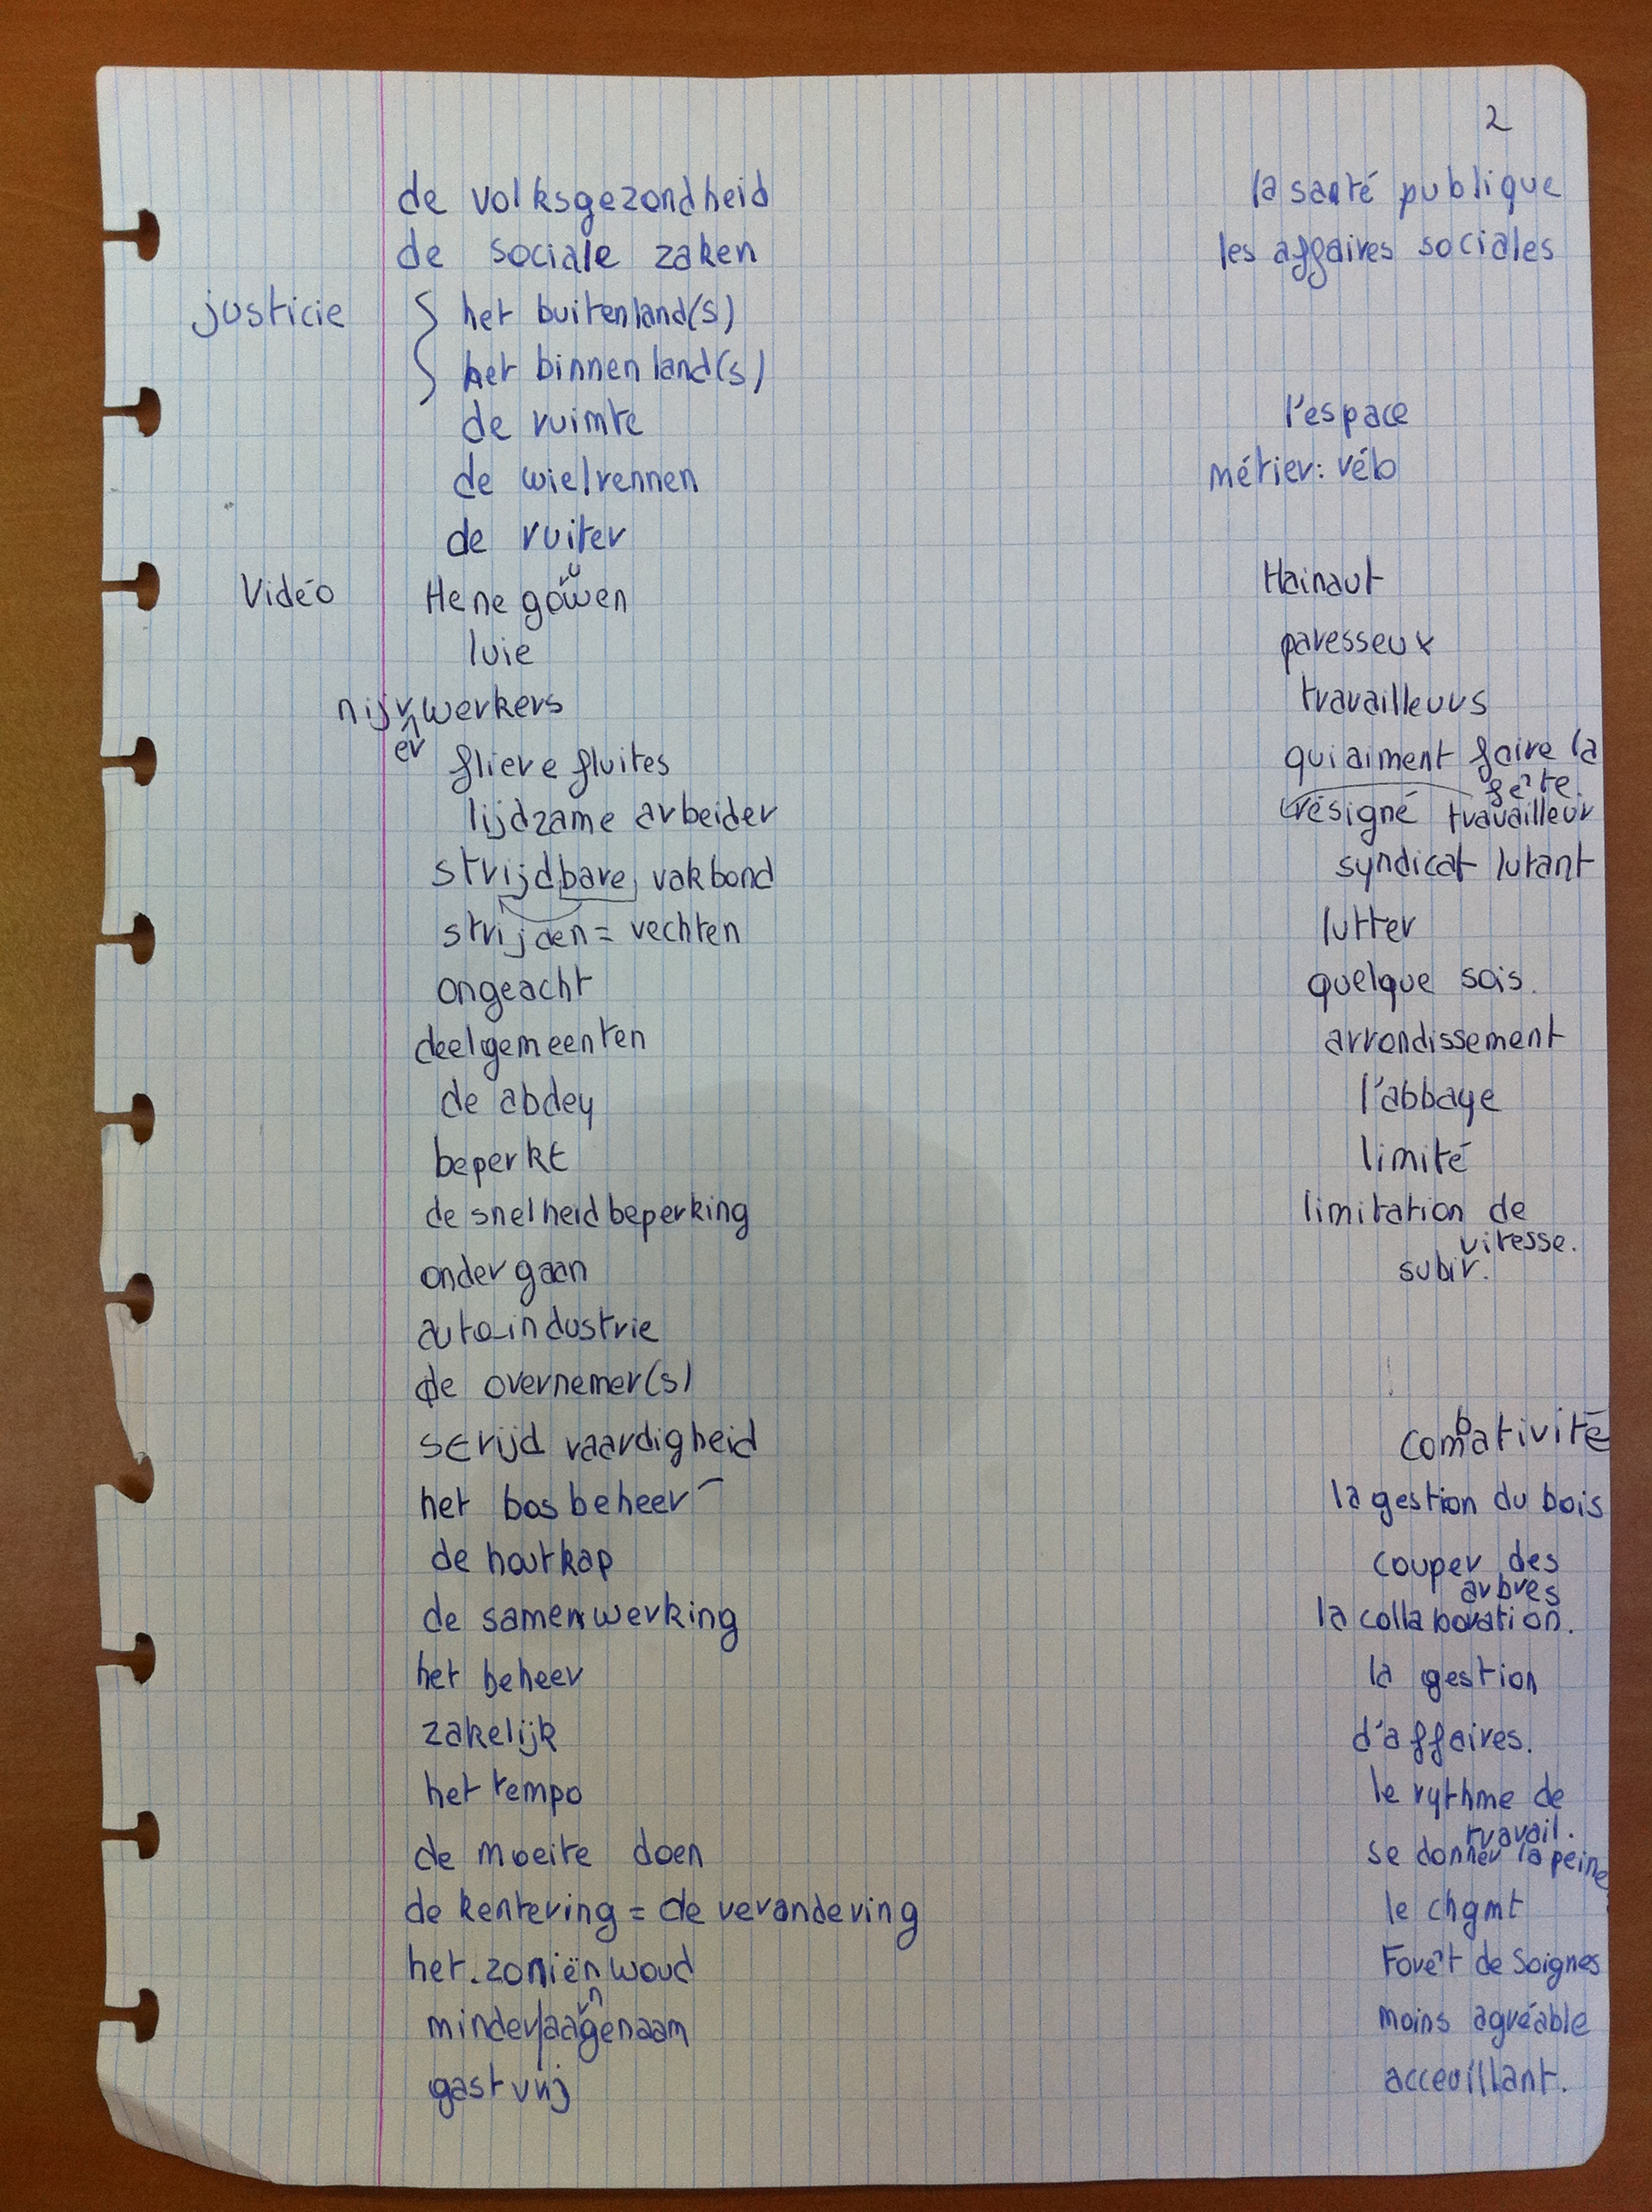 2
de volksgezondheid la santé publique
de sociale zaken les affaires sociales
justicie { het buitenland(s)
{ het binnenland(s)
de ruimte l'espace
de wielrennen métier: vélo
de ruiter
Vidéo Henegouwen Hainaut
luie paresseux
nijverwerkers travailleurs
flierefluites qui aiment faire la fête.
lijdzame arbeider résigné travailleur
strijdbare vakbond syndicat lutant
strijden = vechten lutter
ongeacht quelque sois.
deelgemeenten arrondissement
de abdey l'abbaye
beperkt limité
de snelheidbeperking limitation de vitesse.
ondergaan subir.
auto-industrie
de overnemer(s)
strijdvaardigheid combativité
het bosbeheer la gestion du bois
de houtkap couper des arbres
de samenwerking la collaboration.
het beheer la gestion
zakelijk d'affaires.
het tempo le rythme de travail.
de moeite doen se donner la peine
de kentering = de verandering le chgmt
het zoniënwoud Forêt de Soignes
minder/aangenaam moins agréable
gastvrij acceuillant.